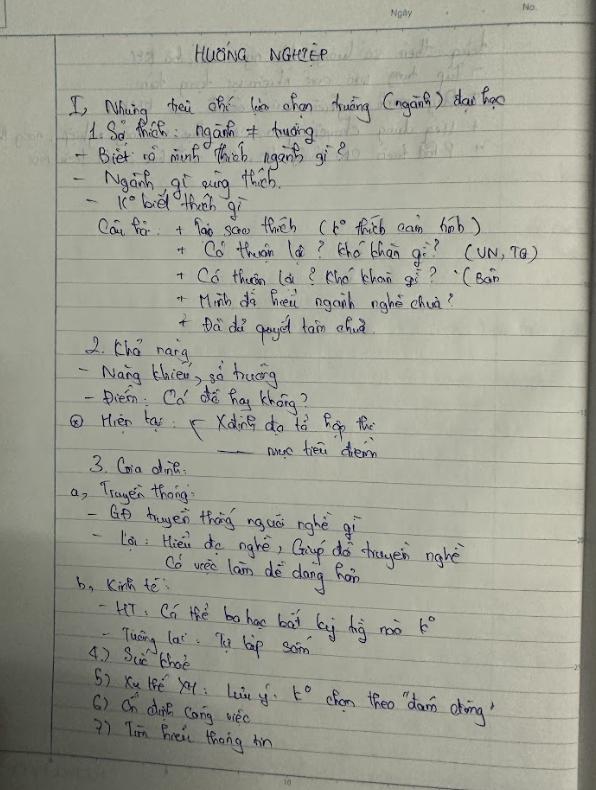 Ngày
No.
HƯỚNG NGHIỆP
I, Những tiêu chí lựa chọn trường (ngành) đại học
1. Sở thích: ngành ≠ trường
+ Biết rõ mình thích ngành gì?
- Ngành gì cũng thích.
- K° biết thích gì
Câu hỏi: + Tại sao thích (K° thích cảm tính)
+ Có thuận lợi? Khó khăn gì? (VN, TG)
+ Có thuận lợi? Khó khăn gì? (Bản
+ Mình đã hiểu ngành nghề chưa?
+ Đã đủ quyết tâm chưa
2. Khả năng
- Năng khiếu, sở trường
- Điểm: Có đỗ hay không?
* Hiện tại: Xđịnh đc tổ hợp thi
— mục tiêu điểm
3. Gia đình:
a, Truyền thống:
- GĐ truyền thống người nghề gì
- Lợi: Hiểu đc nghề, Giúp đỡ truyền nghề
Có việc làm dễ dàng hơn
b, Kinh tế:
- HT: Có thể học bất kỳ trg nào K°
- Tương lai: Tự lập sớm
4.) Sức khoẻ
5) Xu thế XH: Lưu ý: K° chọn theo "đám đông"
6) Ổn định công việc
7) Tìm hiểu thông tin
10